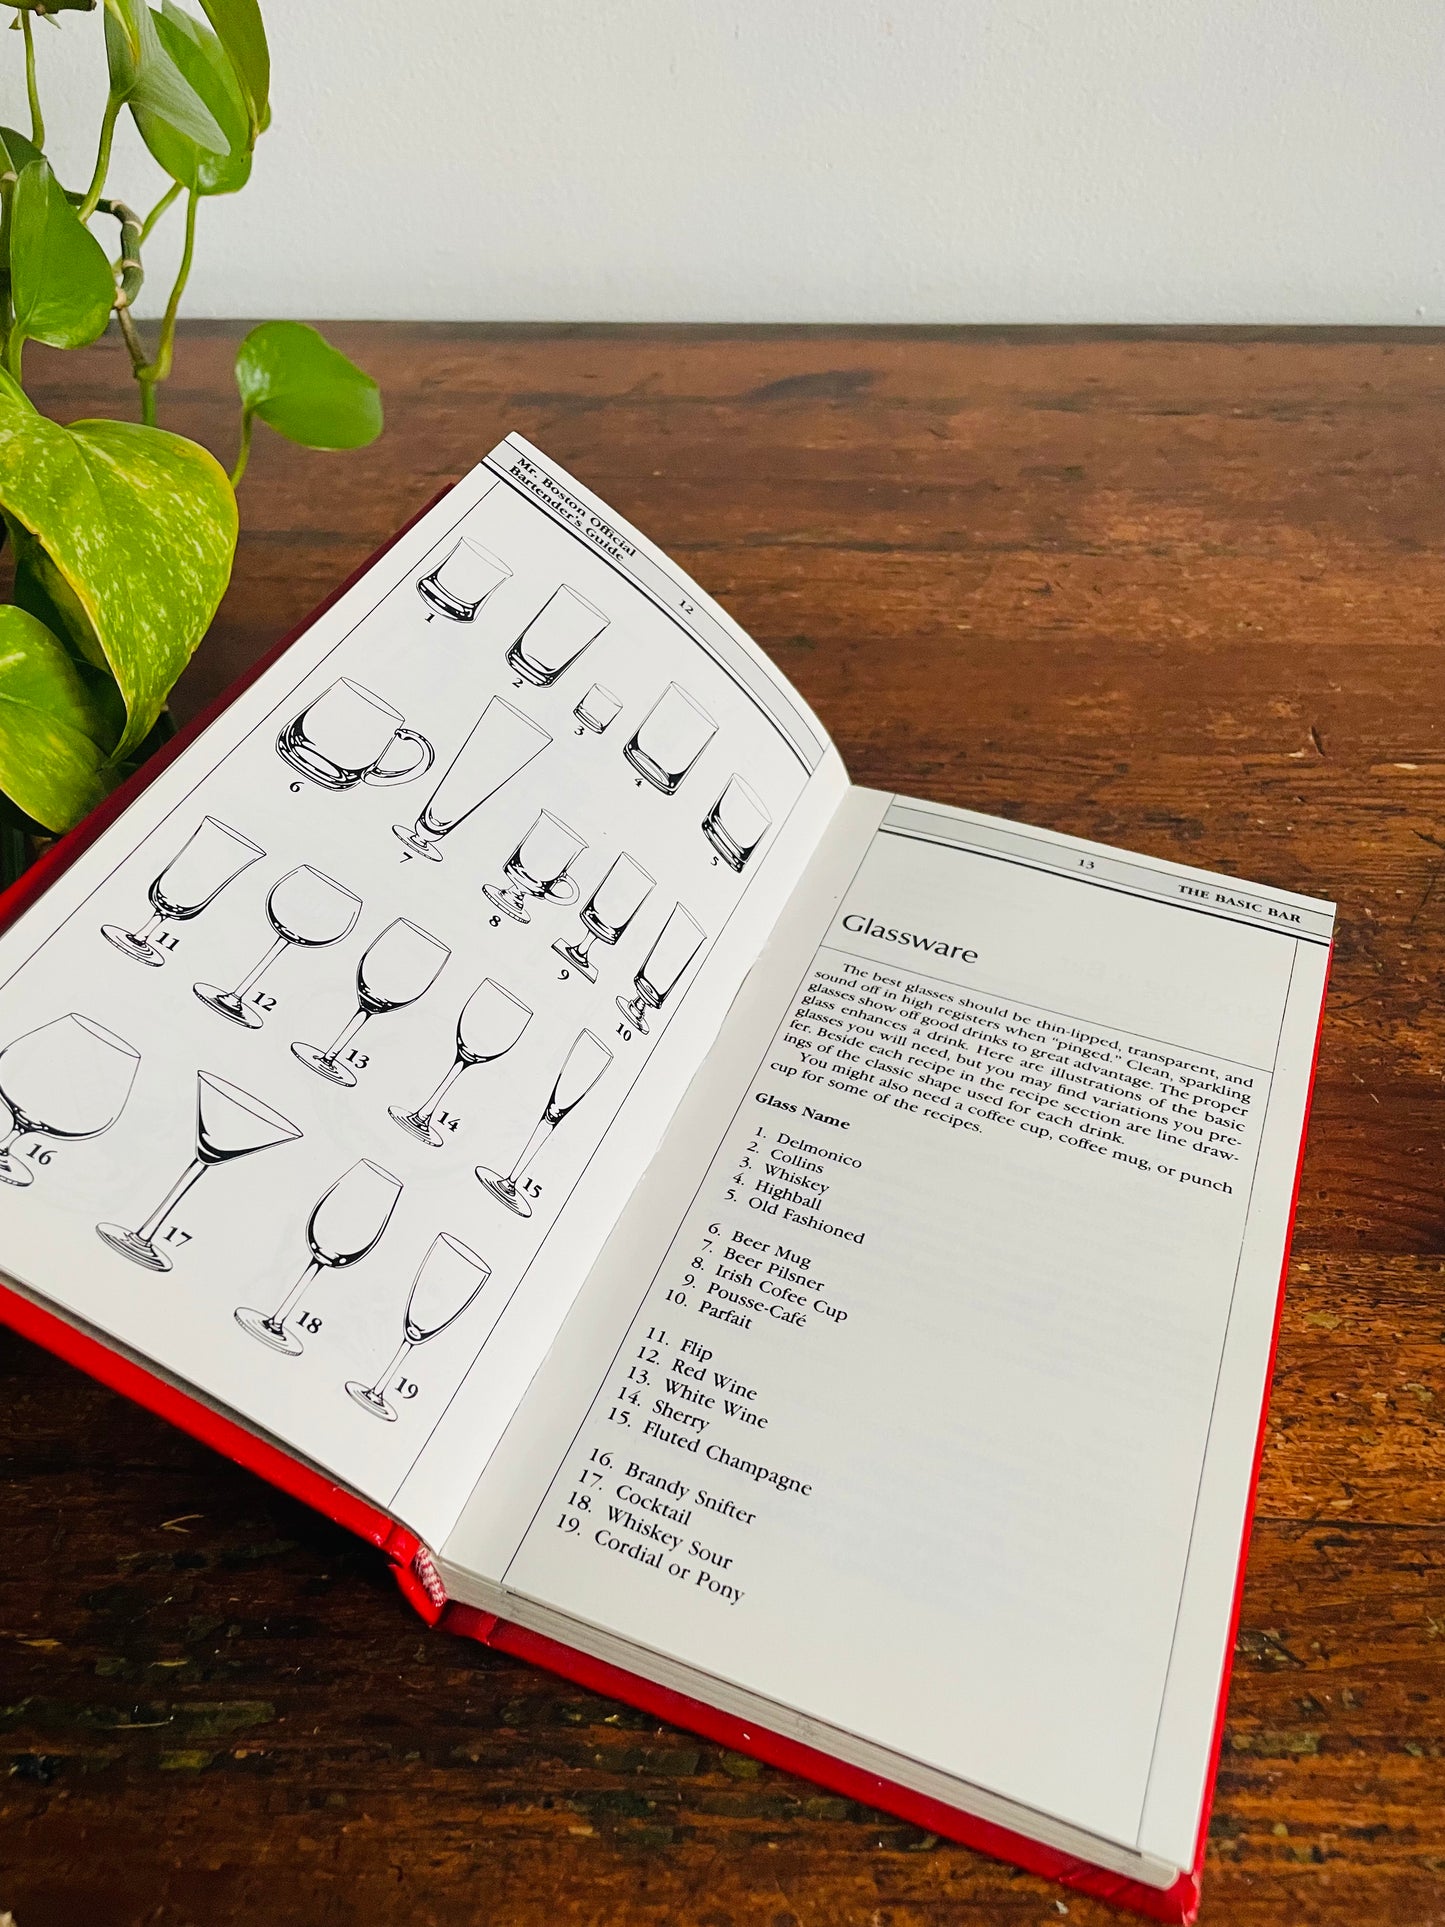 Mr. Boston Official
Bartender's Guide
12
1
2
3
4
5
6
7
8
9
10
11
12
13
14
15
16
17
18
19
13
THE BASIC BAR
Glassware
The best glasses should be thin-lipped, transparent, and
sound off in high registers when "pinged." Clean, sparkling
glasses show off good drinks to great advantage. The proper
glass enhances a drink. Here are illustrations of the basic
glasses you will need, but you may find variations you pre-
fer. Beside each recipe in the recipe section are line draw-
ings of the classic shape used for each drink.
You might also need a coffee cup, coffee mug, or punch
cup for some of the recipes.
Glass Name
1. Delmonico
2. Collins
3. Whiskey
4. Highball
5. Old Fashioned
6. Beer Mug
7. Beer Pilsner
8. Irish Cofee Cup
9. Pousse-Café
10. Parfait
11. Flip
12. Red Wine
13. White Wine
14. Sherry
15. Fluted Champagne
16. Brandy Snifter
17. Cocktail
18. Whiskey Sour
19. Cordial or Pony